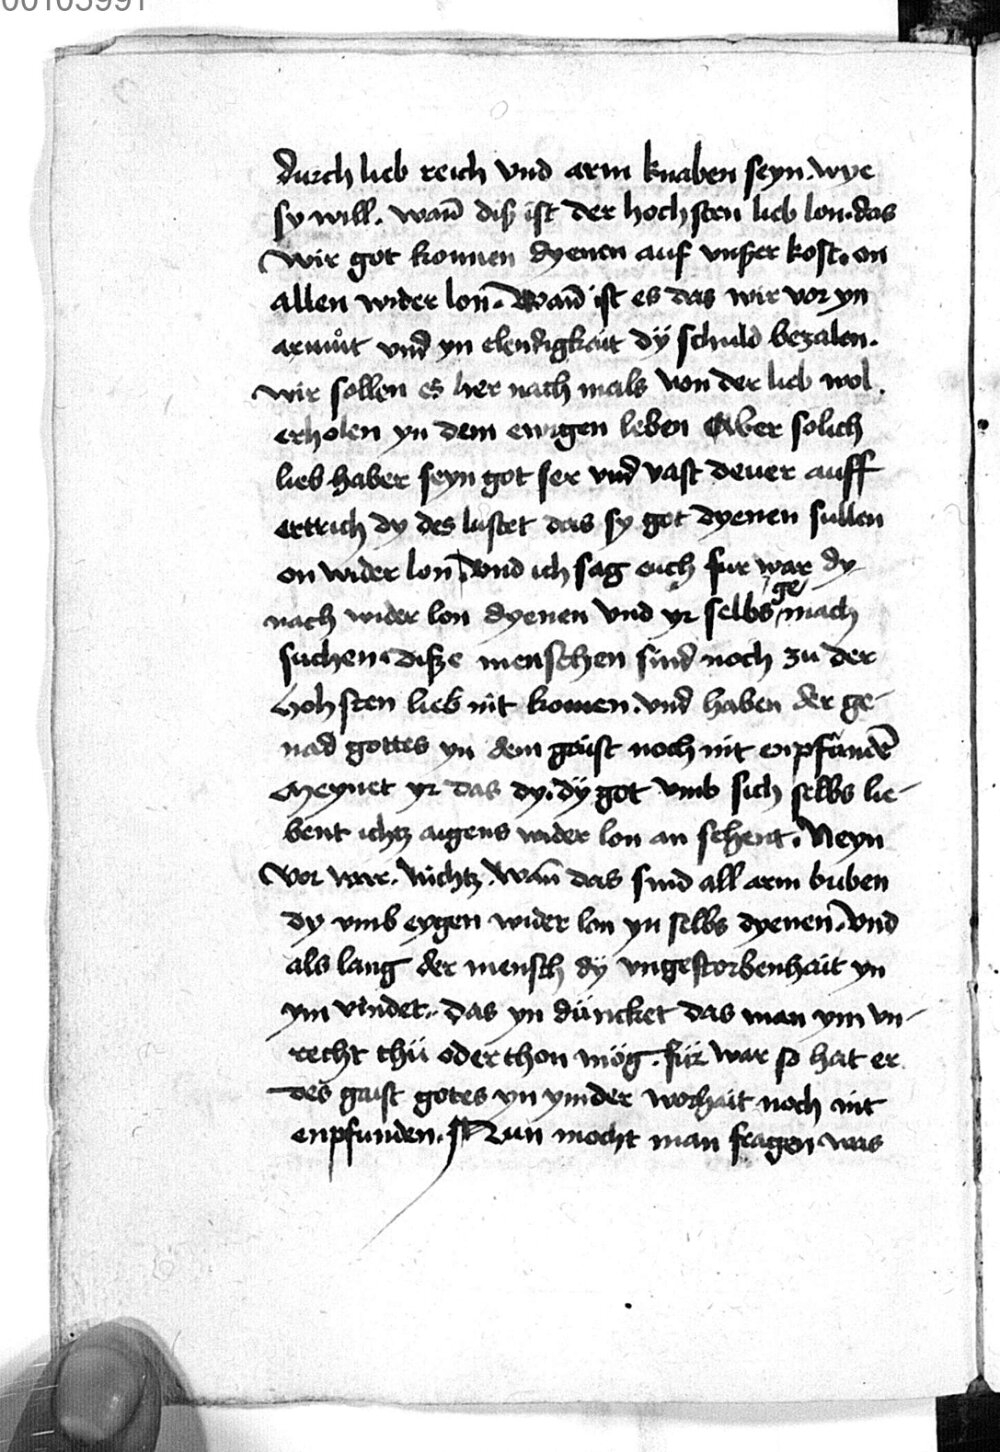 00103991
durch lieb reich vnd arm knaben seyn. wye
sy will. wañ diß ist der hochsten lieb lon. das
wir got konnen dyenen auf vnßer kost. on
allen wider lon. Wañ ist es das wir vor yn
armůt vnd yn elendigkait dÿ schuld bezalen.
wir sollen es her nach mals von der lieb wol
erholen yn dem ewigen leben Aber solich
lieb haber seyn got ser vnd vast deuer auff
ertrich dy des lustet das sy got dyenen sullen
on wider lon. Vnd ich sag euch fur war dy
ge
nach wider lon dyenen vnd yr selbs mach
suchen. diße menschen sind noch zu der
hohsten lieb nit komen. vnd haben der ge-
nad gottes yn dem gaist noch nit enpfundē
Meynet yr das dy. dÿ got vmb sich selbs lie-
bent ichtz aigens wider lon an sehent. Neyn
vor war. nichtz. wañ das sind all arm buben
dy vmb eygen wider lon yn selbs dyenen. Vnd
als lang der mensch dÿ vngestorbenhait yn
ym vindet. das yn düncket das man ym vn-
recht thü oder thon mög. für war so hat er
des gaist gotes yn ynder worhait noch nit
enpfunden. Nun mocht man fragen was